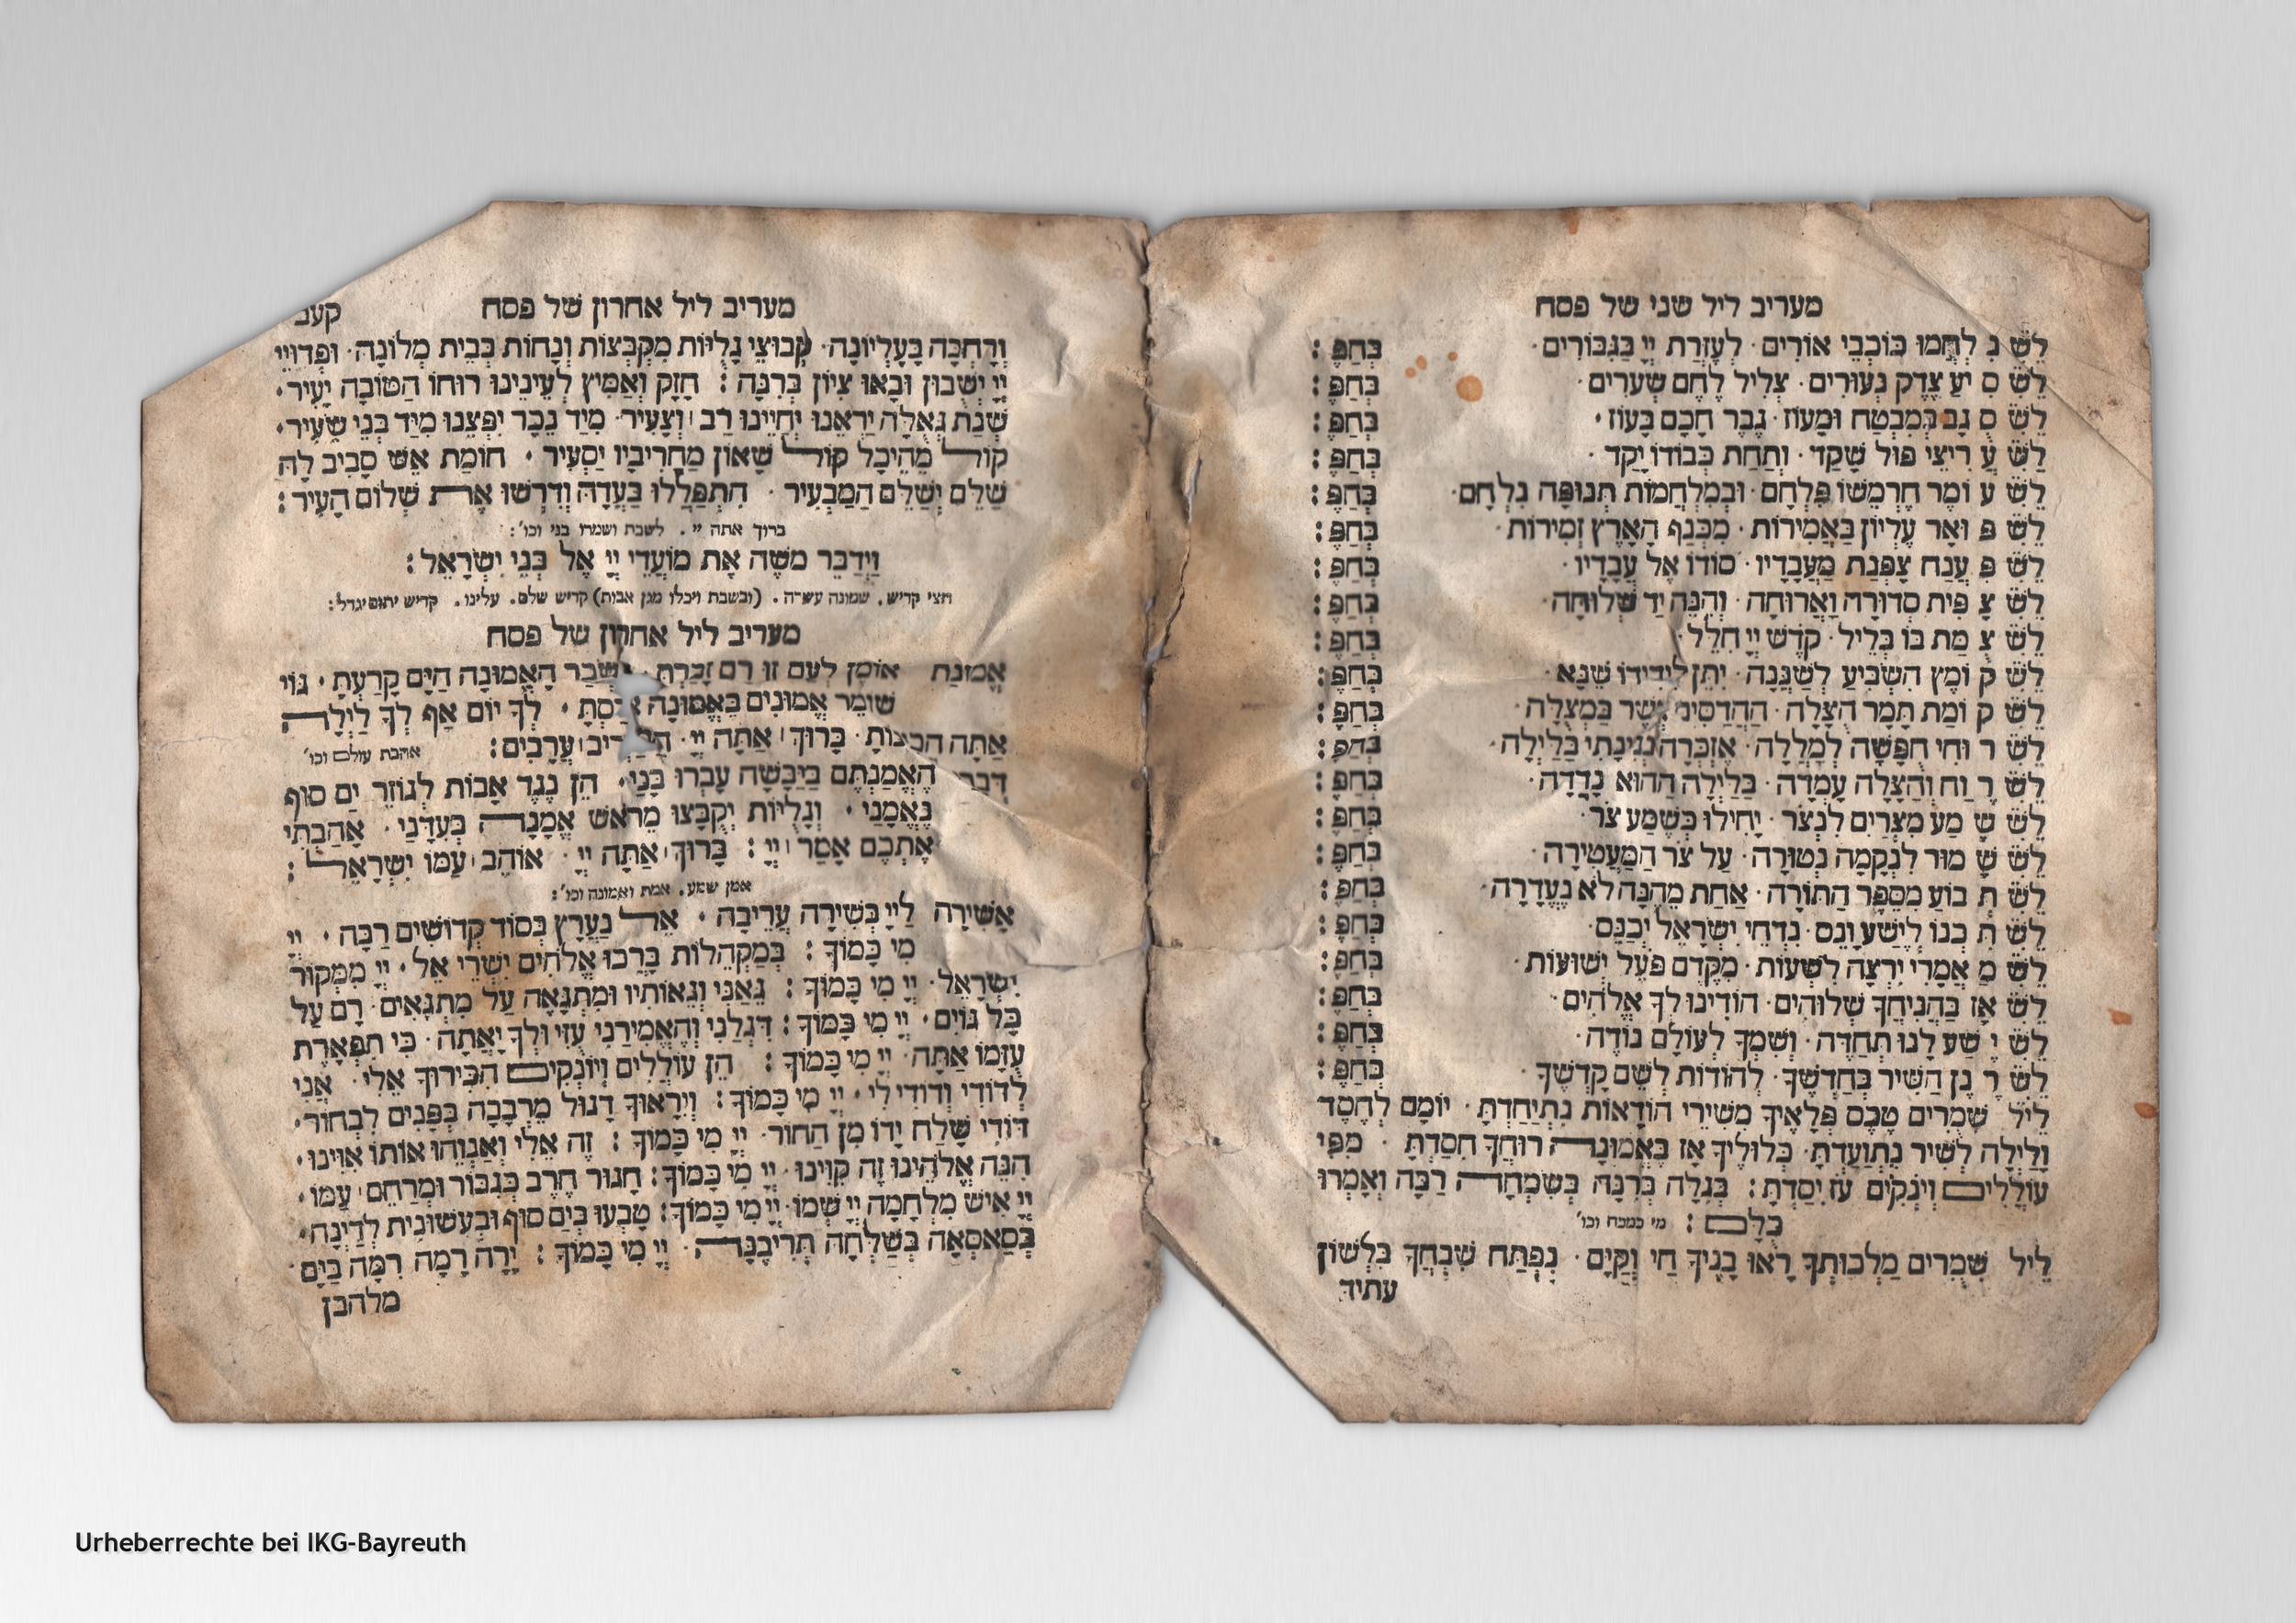 מעריב ליל שני של פסח
לֵשׁ נ לְחֲמוּ כּוֹכְבֵי אוֹרִים· לְעֶזְרַת יְיָ בַּגִּבּוֹרִים· בְּחַפְּ:
לֵשׁ ס יַע צֶדֶק נְעוּרִים· צְלִיל לֶחֶם שְׂעֹרִים· בְּחַפְּ:
לֵשׁ ס גָב בְּמִבְטַח וּמָעוֹז· גֶבֶר חָכָם בָּעוֹז· בְּחַפְּ:
לֵשׁ עָ רִיצֵי פוּל שָׁקַד· וְתַחַת כְּבוֹדוֹ יֵקַד· בְּחַפְּ:
לֵשׁ ע וֹמֶר חֶרְמֵשׁוֹ פִּלְחָם· וּבְמִלְחֲמוֹת תְּנוּפָה נִלְחָם· בְּחַפְּ:
לֵשׁ פּ וּאַר עֶלְיוֹן בַּאֲמִירוֹת· מִכְּנַף הָאָרֶץ זְמִירוֹת· בְּחַפְּ:
לֵשׁ פּ עֲנַח צָפְנַת מַעֲבָדָיו· סוֹדוֹ אֶל עֲבָדָיו· בְּחַפְּ:
לֵשׁ צ פִּית סְדוּרָה וַאֲרוּחָה· וְהִנֵּה יַד שְׁלוּחָה· בְּחַפְּ:
לֵשׁ צ מַת בּוֹ בְּלֵיל· קֹדֶשׁ יְיָ חִלֵּל· בְּחַפְּ:
לֵשׁ ק וֹמֶץ הִשְׂבִּיעַ לְשַׁנֲנָה· יִתֵּן לִידִידוֹ שֵׁנָא· בְּחַפְּ:
לֵשׁ ק וֹמַת תָּמָר הֻצְלָה· הַהֲדַסִּים אֲשֶׁר בִּמְצֻלָה· בְּחַפְּ:
לֵשׁ ר וּחִי חִפְּשָׂה לְמַלְלָה· אֶזְכְּרָה נְגִינָתִי בַּלָּיְלָה· בְּחַפְּ:
לֵשׁ רֶ וַח וְהַצָּלָה עָמְדָה· בַּלַּיְלָה הַהוּא נָדְדָה· בְּחַפְּ:
לֵשׁ שֵׁ מַע מִצְרַיִם לִנְצֹר· יָחִילוּ כְּשֵׁמַע צֹר· בְּחַפְּ:
לֵשׁ שָׁ מוּר לִנְקָמָה נְטוּרָה· עַל צֹר הַמַּעֲטִירָה· בְּחַפְּ:
לֵשׁ תְּ בוֹעַ מִסֵּפֶר הַתּוֹרָה· אַחַת מֵהֵנָּה לֹא נֶעְדָּרָה· בְּחַפְּ:
לֵשׁ תּ כְנוֹ לְיֶשַׁע וָנֵס· נִדְחֵי יִשְׂרָאֵל יְכַנֵּס· בְּחַפְּ:
לֵשׁ מַ אֲמָרִי יִרְצֶה לִשְׁעוֹת· מִקֶּדֶם פֹּעֵל יְשׁוּעוֹת· בְּחַפְּ:
לֵשׁ אָז בַּהֲנִיחֲךָ שְׁלוּהִים· הוֹדִינוּ לְךָ אֱלֹהִים· בְּחַפְּ:
לֵשׁ יֶ שַׁע לָנוּ תְחַדֶּה· וְשִׁמְךָ לְעוֹלָם נוֹדֶה· בְּחַפְּ:
לֵשׁ רָ נֵן הַשִּׁיר בְּחַדְּשֶׁךָ· לְהוֹדוֹת לְשֵׁם קָדְשֶׁךָ· בְּחַפְּ:
לֵיל שִׁמֻּרִים טֶכֶס פְּלָאֶיךָ מִשִּׁירֵי הוֹדָאוֹת נִתְיַחַדְתָּ· יוֹמָם לְחֶסֶד
וְלַיְלָה לְשִׁיר נִתְוַעַדְתָּ· כְּלוּלֶיךָ אָז בֶּאֱמוּנָה רוּחֲךָ חִסַּדְתָּ· מִפִּי
עוֹלְלִים וְיוֹנְקִים עֹז יִסַּדְתָּ: בְּגִלָה בְּרִנָה בְּשִׂמְחָה רַבָּה וְאָמְרוּ
כֻלָּם: מי כמכה וכו'
לֵיל שִׁמֻּרִים מַלְכוּתְךָ רָאוּ בָנֶיךָ חַי וְקַיָּם· נִפְתַּח שִׁבְחֲךָ בִּלְשׁוֹן
עתיד
מעריב ליל אחרון של פסח קעב
וְרָחְכָּה בָּעֶלְיוֹנָה· קִבּוּצֵי גָלֻיּוֹת מְקֻבָּצוֹת וְנָחוֹת בְּבֵית מְלוֹנָה· וּפְדוּיֵי
יְיָ יְשֻׁבוּן וּבָאוּ צִיּוֹן בְּרִנָּה: חָזַק וְאַמִּיץ לְעֵינֵינוּ רוּחוֹ הַטּוֹבָה יָעִיר·
שְׁנַת גְאֻלָּה יַרְאֵנוּ יְחַיֵּינוּ רַב וְצָעִיר· מִיַד נֵכָר יִפְצֵנוּ מִיַד בְּנֵי שֵׂעִיר·
קוֹל מֵהֵיכָל קוֹל שָׁאוֹן מַחֲרִיבָיו יַסְעִיר· חוֹמַת אֵשׁ סָבִיב לָהּ
שַׁלֵּם יְשַׁלֵּם הַמַּבְעִיר· הִתְפַּלְלוּ בַעֲדָהּ וְדִרְשׁוּ אֶת שְׁלוֹם הָעִיר:
ברוך אתה יי. לשבת ושמרו בני וכו':
וַיְדַבֵּר מֹשֶׁה אֶת מוֹעֲדֵי יְיָ אֶל בְּנֵי יִשְׂרָאֵל:
וחצי קדיש. שמונה עשרה. (ובשבת ויכלו מגן אבות) קדיש שלם. עלינו. קדיש יתום יגדל:
מעריב ליל אחרון של פסח
אֱמוּנַת אוֹמֶן לְעַם זוּ רַם זָכַרְתָּ· שֵׁבֶר הָאֱמוּנָה הַיָּם קָרַעְתָּ· גּוֹי
שׁוֹמֵר אֱמוּנִים בֶּאֱמוּנָה· לְךָ יוֹם אַף לְךָ לַיְלָה
אַתָּה· בָּרוּךְ אַתָּה יְיָ· עֲרָבִים: אהבת עולם וכו'
הֶאֱמַנְתֶּם בַּיַּבָּשָׁה עָבְרוּ בָּנַי· הֵן נֶגֶד אָבוֹת לְגוֹזֵר יַם סוּף
נֶאֱמָנַי· וְגָלֻיּוֹת יְקֻבְּצוּ מֵרֹאשׁ אֲמָנָה בְּעֶדְנַי· אָהַבְתִּי
אֶתְכֶם אָמַר יְיָ: בָּרוּךְ אַתָּה יְיָ· אוֹהֵב עַמּוֹ יִשְׂרָאֵל:
אמן שמע. אמת ואמונה וכו':
אָשִׁירָה לַייָ בְּשִׁירָה עֲרֵיבָה· אֵל נַעֲרָץ בְּסוֹד קְדוֹשִׁים רַבָּה· יְיָ
מִי כָּמוֹךָ: בְּמַקְהֵלוֹת בָּרְכוּ אֱלֹהִים יִשְׁרֵי אֵל· יְיָ מִמְּקוֹר
יִשְׂרָאֵל· יְיָ מִי כָּמוֹךָ: גֵּאַנִי וְגֵאוֹתָיו וּמִתְגָּאֶה עַל מִתְגָּאִים· רָם עַל
כָּל גּוֹיִם· יְיָ מִי כָּמוֹךָ: דִּגְּלַנִי וְהֶאֱמִירַנִי עֻזִּי וּלְךָ יָאֲתָה· כִּי תִפְאֶרֶת
עֻזָּמוֹ אַתָּה· יְיָ מִי כָּמוֹךָ: הֵן עוֹלְלִים וְיוֹנְקִים הִכִּירוּךָ אֵלִי· אֲנִי
לְדוֹדִי וְדוֹדִי לִי· יְיָ מִי כָּמוֹךָ: וְיִרָאוּךָ דָּגוּל מֵרְבָבָה בְּפָנִים לִבְחוֹר·
דּוֹדִי שָׁלַח יָדוֹ מִן הַחוֹר· יְיָ מִי כָּמוֹךָ: זֶה אֵלִי וְאַנְוֵהוּ אוֹתוֹ אִוִּינוּ·
הִנֵּה אֱלֹהֵינוּ זֶה קִוִּינוּ· יְיָ מִי כָּמוֹךָ: חָגוּר חֶרֶב כְּגִבּוֹר וּמְרַחֵם עַמּוֹ·
יְיָ אִישׁ מִלְחָמָה יְיָ שְׁמוֹ· יְיָ מִי כָּמוֹךָ: טֻבְּעוּ בְּיַם סוּף וּבְעִשּׁוּנִית לְדַיְנָה·
בְּסַאסְאָה בְּשַׁלְּחָהּ תְּרִיבֶנָּה· יְיָ מִי כָּמוֹךָ: יָרָה רָמָה רִמָּה בַיָּם
מלהבן
Urheberrechte bei IKG-Bayreuth